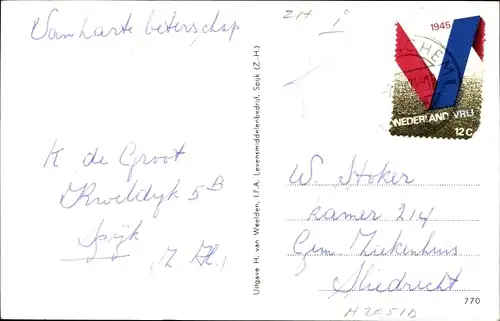 Van harte beterschap
K de Groot
Kweldijk 5B
Spijk
(Z. H.)
Uitgave H. van Weelden, I.F.A. Levensmiddelenbedrijf, Spijk (Z.-H.)
214
1945
NEDERLAND VRIJ
12c
W. Stoker
kamer 214
Gem. Ziekenhuis
Sliedrecht
770
H2051D